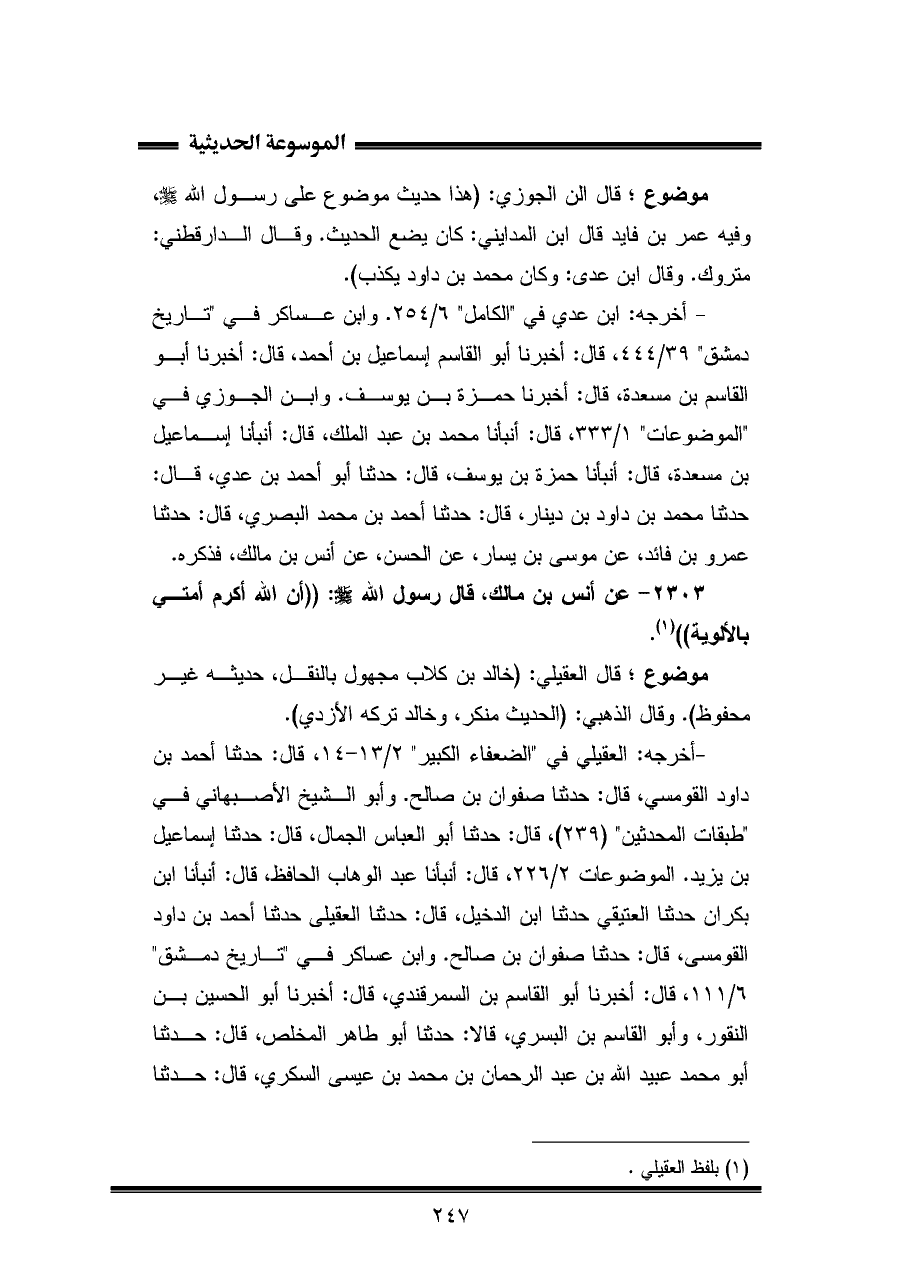 الموسوعة الحديثية
موضوع ؛ قال الن الجوزي: (هذا حديث موضوع على رسول الله ﷺ،
وفيه عمر بن فايد قال ابن المدايني: كان يضع الحديث. وقال الدارقطني:
متروك. وقال ابن عدى: وكان محمد بن داود يكذب).
- أخرجه: ابن عدي في "الكامل" ٢٥٤/٦. وابن عساكر في "تاريخ
دمشق" ٤٤٤/٣٩، قال: أخبرنا أبو القاسم إسماعيل بن أحمد، قال: أخبرنا أبو
القاسم بن مسعدة، قال: أخبرنا حمزة بن يوسف. وابن الجوزي في
"الموضوعات" ٣٣٣/١، قال: أنبأنا محمد بن عبد الملك، قال: أنبأنا إسماعيل
بن مسعدة، قال: أنبأنا حمزة بن يوسف، قال: حدثنا أبو أحمد بن عدي، قال:
حدثنا محمد بن داود بن دينار، قال: حدثنا أحمد بن محمد البصري، قال: حدثنا
عمرو بن فائد، عن موسى بن يسار، عن الحسن، عن أنس بن مالك، فذكره.
٢٣٠٣- عن أنس بن مالك، قال رسول الله ﷺ: ((أن الله أكرم أمتي
بالألوية))(١).
موضوع ؛ قال العقيلي: (خالد بن كلاب مجهول بالنقل، حديثه غير
محفوظ). وقال الذهبي: (الحديث منكر، وخالد تركه الأزدي).
-أخرجه: العقيلي في "الضعفاء الكبير" ١٣/٢-١٤، قال: حدثنا أحمد بن
داود القومسي، قال: حدثنا صفوان بن صالح. وأبو الشيخ الأصبهاني في
"طبقات المحدثين" (٢٣٩)، قال: حدثنا أبو العباس الجمال، قال: حدثنا إسماعيل
بن يزيد. الموضوعات ٢٢٦/٢، قال: أنبأنا عبد الوهاب الحافظ، قال: أنبأنا ابن
بكران حدثنا العتيقي حدثنا ابن الدخيل، قال: حدثنا العقيلى حدثنا أحمد بن داود
القومسى، قال: حدثنا صفوان بن صالح. وابن عساكر في "تاريخ دمشق"
١١١/٦، قال: أخبرنا أبو القاسم بن السمرقندي، قال: أخبرنا أبو الحسين بن
النقور، وأبو القاسم بن البسري، قالا: حدثنا أبو طاهر المخلص، قال: حدثنا
أبو محمد عبيد الله بن عبد الرحمان بن محمد بن عيسى السكري، قال: حدثنا
(١) بلفظ العقيلي .
٢٤٧